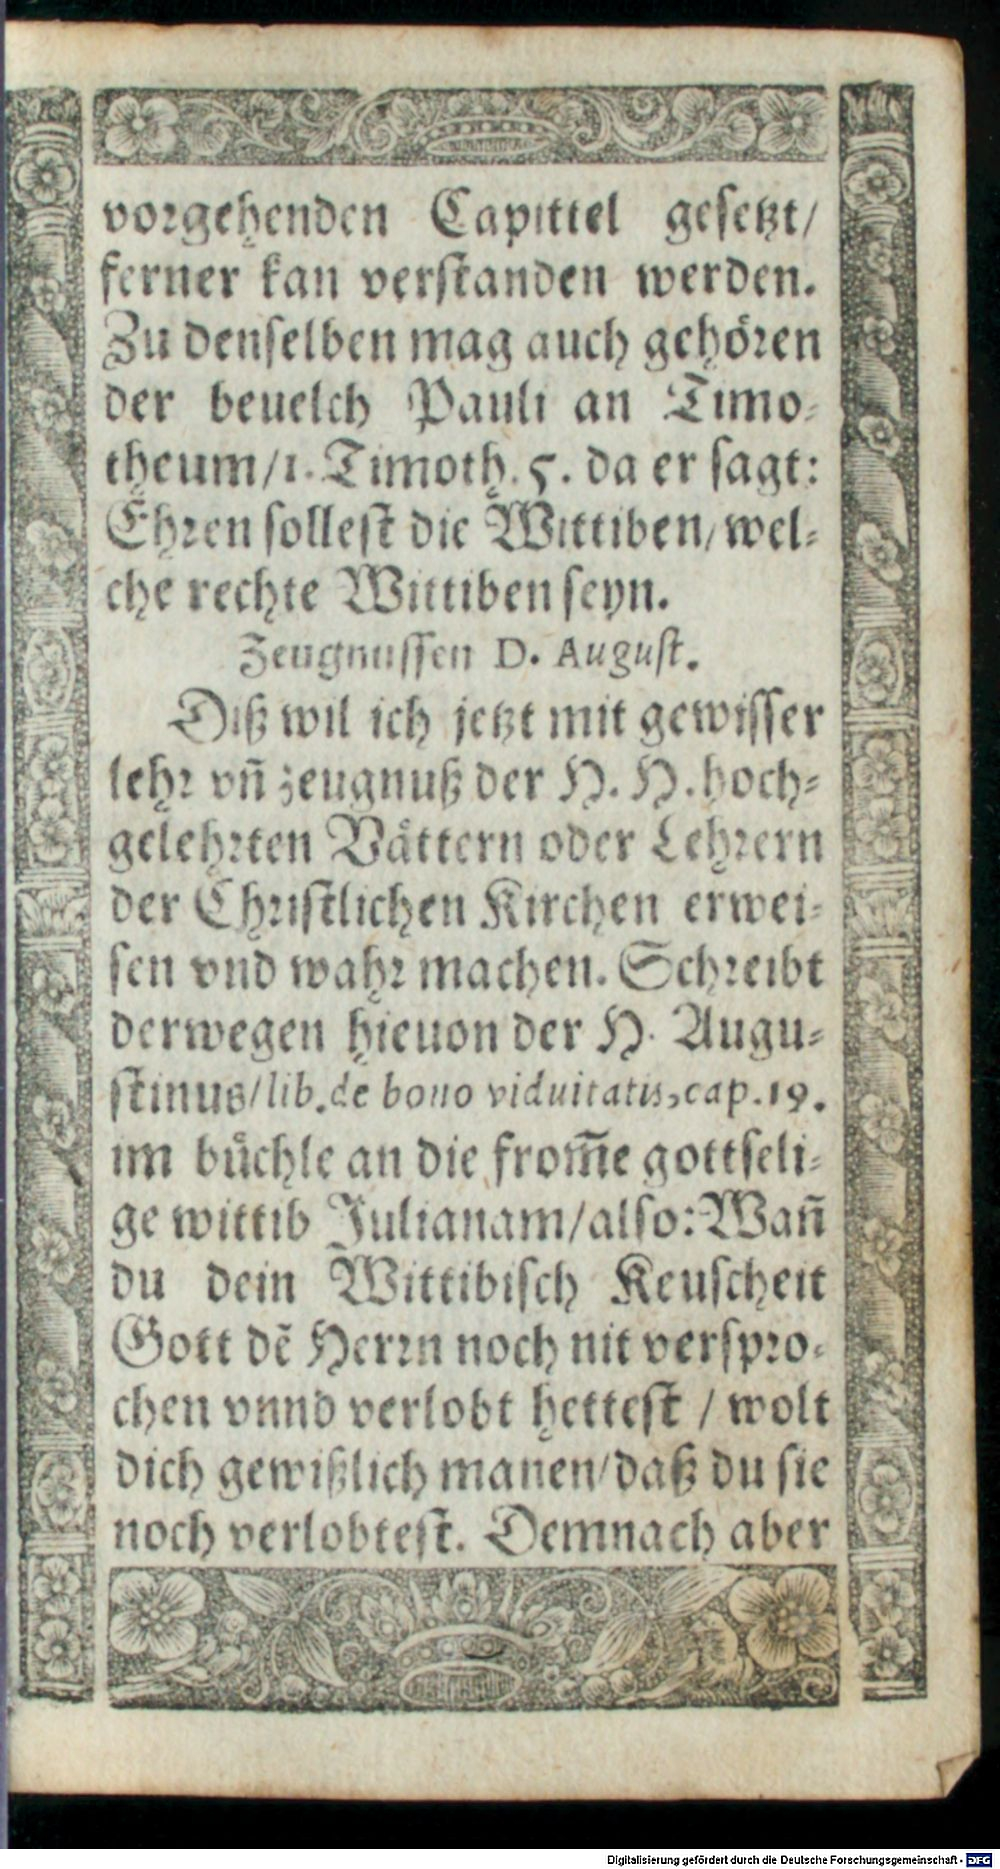 vorgehenden Capittel gesetzt/
ferner kan verstanden werden.
Zu denselben mag auch gehören
der beuelch Pauli an Timo-
theum/1. Timoth. 5. da er sagt:
Ehren sollest die Wittiben/ wel-
che rechte Wittiben seyn.
Zeugnussen D. August.
Diß wil ich jetzt mit gewisser
lehr vn̄ zeugnuß der H. H. hoch-
gelehrten Vättern oder Lehrern
der Christlichen Kirchen erwei-
sen vnd wahr machen. Schreibt
derwegen hieuon der H. Augu-
stinus/lib. de bono viduitatis, cap. 19.
im büchle an die from̄e gottseli-
ge wittib Julianam/also: Wan̄
du dein Wittibisch Keuscheit
Gott dē Herrn noch nit verspro-
chen vnnd verlobt hettest / wolt
dich gewißlich manen/daß du sie
noch verlobtest. Demnach aber
Digitalisierung gefördert durch die Deutsche Forschungsgemeinschaft - DFG